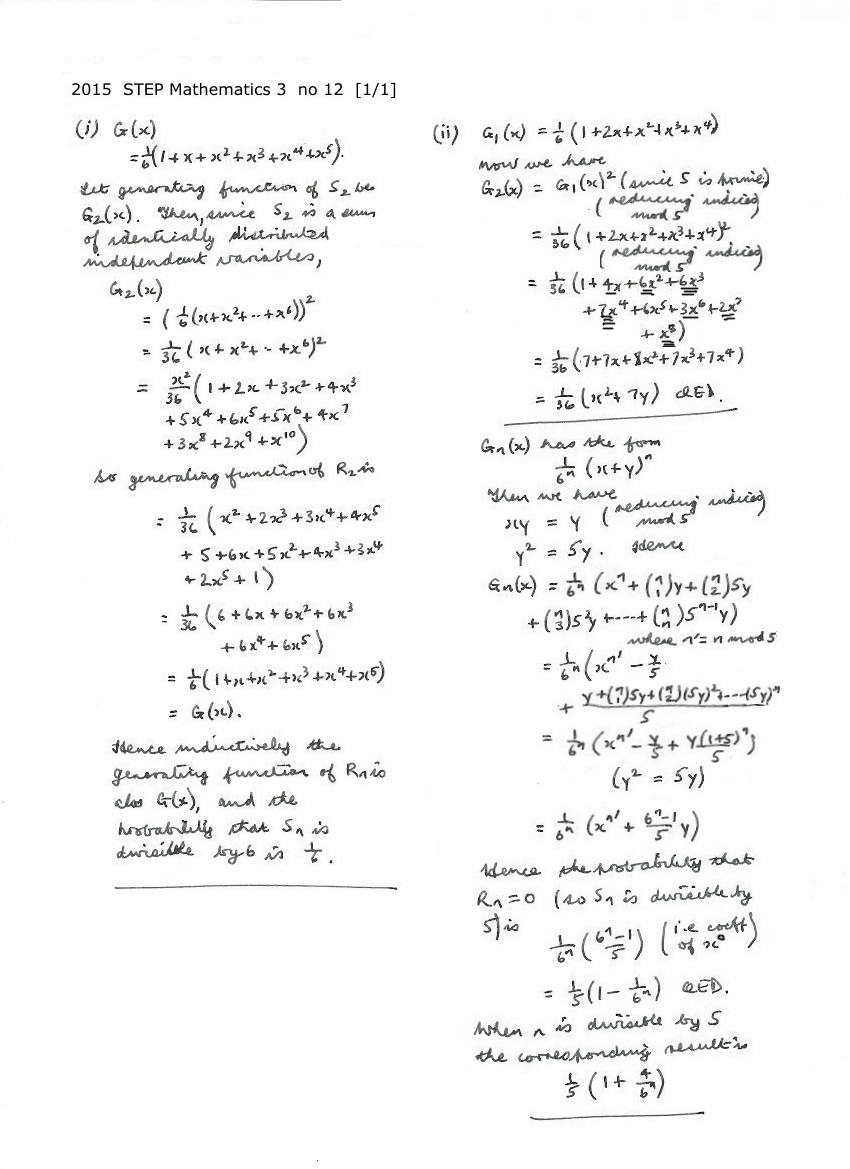 2015 STEP Mathematics 3 no 12 [1/1]
(i) G(x)
= 1/6(1+x+x²+x³+x⁴+x⁵).
Let generating function of S₂ be
G₂(x). Then, since S₂ is a sum
of identically distributed
independent variables,
G₂(x)
= (1/6(x+x²+--+x⁶))²
= 1/36 (x+x²+--+x⁶)²
= x²/36 (1+2x+3x²+4x³
+5x⁴+6x⁵+5x⁶+4x⁷
+3x⁸+2x⁹+x¹⁰)
So generating function of R₂ is
= 1/36 (x²+2x³+3x⁴+4x⁵
+5+6x+5x²+4x³+3x⁴
+2x⁵+1)
= 1/36 (6+6x+6x²+6x³
+6x⁴+6x⁵)
= 1/6(1+x+x²+x³+x⁴+x⁵)
= G(x).
Hence inductively the
generating function of Rₙ is
also G(x), and the
probability that Sₙ is
divisible by 6 is 1/6.
(ii) G₁(x) = 1/6 (1+2x+x²+x³+x⁴)
Now we have
G₂(x) = G₁(x)² (since 5 is prime)
(reducing indices
mod 5)
= 1/36 (1+2x+x²+x³+x⁴)²
(reducing indices
mod 5)
= 1/36 (1+4x+6x²+6x³
+7x⁴+6x⁵+3x⁶+2x⁷
+x⁸)
= 1/36 (7+7x+8x²+7x³+7x⁴)
= 1/36 (x²+7y) QED.
Gₙ(x) has the form
1/6ⁿ (x+y)ⁿ
Then we have
xy = y (reducing indices
mod 5)
y² = 5y. Hence
Gₙ(x) = 1/6ⁿ (xⁿ' + (n 1)y + (n 2)5y
+ (n 3)5²y +----+ (n n)5ⁿ⁻¹y)
where n' = n mod 5
= 1/6ⁿ (xⁿ' − y/5
+ y+(n 1)5y+(n 2)(5y)²+---(5y)ⁿ/5
= 1/6ⁿ (xⁿ' − y/5 + y(1+5)ⁿ/5)
(y² = 5y)
= 1/6ⁿ (xⁿ' + 6ⁿ−1/5 y)
Hence the probability that
Rₙ=0 (so Sₙ is divisible by
5) is
1/6ⁿ (6ⁿ−1/5) (i.e coeff
of x⁰)
= 1/5 (1 − 1/6ⁿ) QED.
When n is divisible by 5
the corresponding result is
1/5 (1 + 4/6ⁿ)